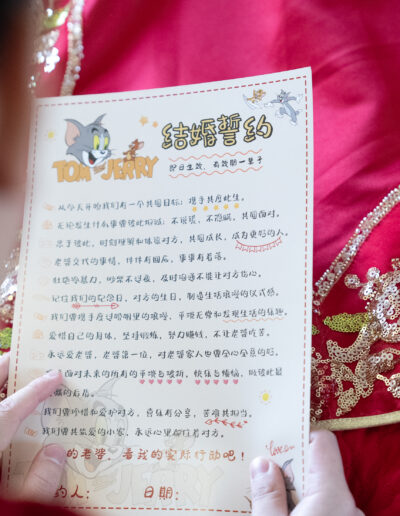 结婚誓约
TOM AND JERRY
即日生效，有效期一辈子
从今天开始我们有一个共同目标：携手共度此生。
无论发生什么事要彼此坦诚：不说谎、不隐瞒、共同面对。
携手彼此，时刻理解和体谅对方，共同成长，成为更好的人。
老婆交代的事情，件件有回应，事事有着落。
杜绝冷暴力，吵架不过夜，及时沟通不能让对方伤心。
记住我们的纪念日、对方的生日，制造生活浪漫的仪式感。
我们要携手度过哪里的浪漫，平淡无常和发现生活的乐趣。
爱惜自己的身体，坚持锻炼，努力赚钱，不让老婆吃苦。
永远爱老婆，老婆第一位，对老婆家人也要全心全意的好。
面对未来的所有的平淡与波折，快乐与烦恼，做彼此最
的后盾。
我们要珍惜和爱护对方，喜乐有分享，苦难共担当。
我们要共筑爱的小家，永远心里都住着对方。
的老婆，看我的实际行动吧！
约人：
日期：
Love